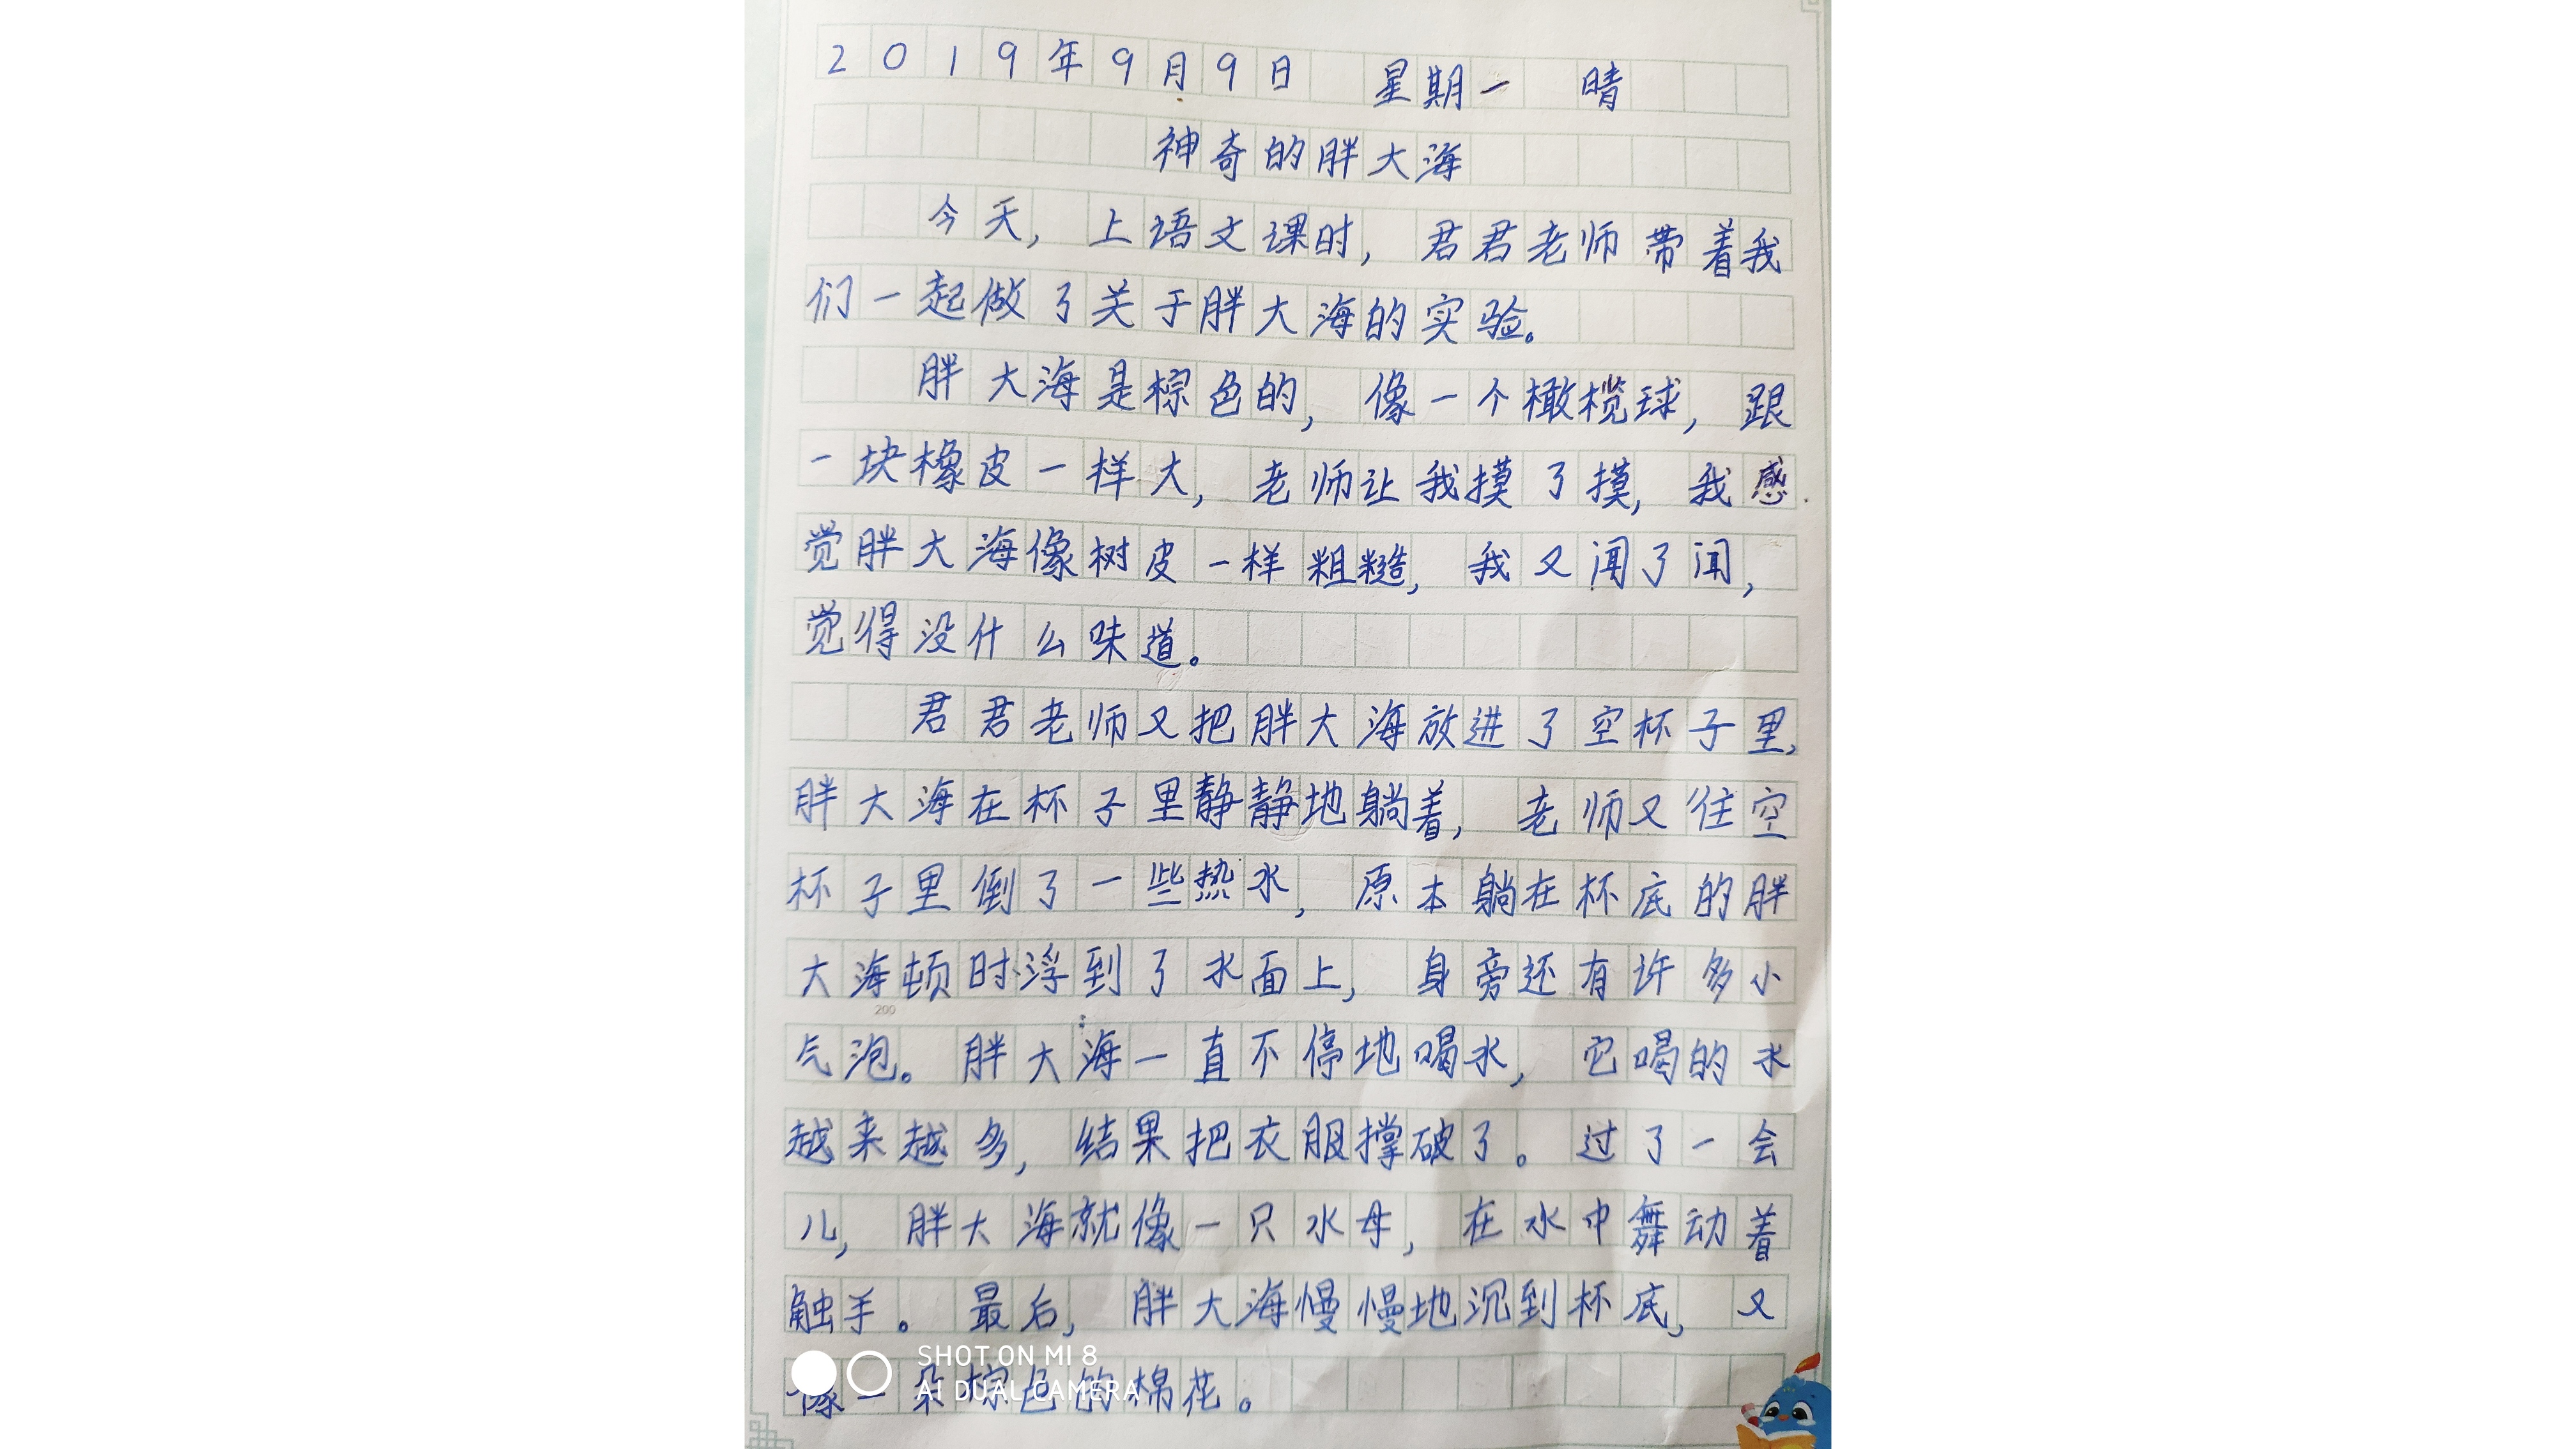 2019年9月9日 星期一 晴
神奇的胖大海
今天，上语文课时，君君老师带着我
们一起做了关于胖大海的实验。
胖大海是棕色的，像一个橄榄球，跟
一块橡皮一样大，老师让我摸了摸，我感
觉胖大海像树皮一样粗糙，我又闻了闻，
觉得没什么味道。
君君老师又把胖大海放进了空杯子里，
胖大海在杯子里静静地躺着，老师又往空
杯子里倒了一些热水，原本躺在杯底的胖
大海顿时浮到了水面上，身旁还有许多小
200
气泡。胖大海一直不停地喝水，它喝的水
越来越多，结果把衣服撑破了。过了一会
儿，胖大海就像一只水母，在水中舞动着
触手。最后，胖大海慢慢地沉到杯底，又
像一朵棕色的棉花。
SHOT ON MI 8
AI DUAL CAMERA